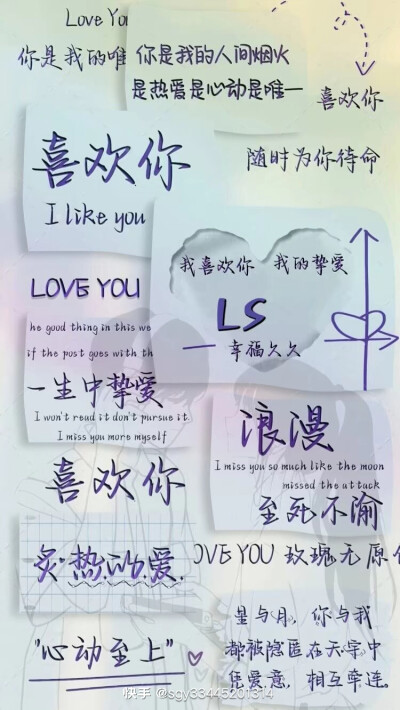 Love Yo
你是我的唯
你是我的人间烟火
是热爱是心动是唯一
喜欢你
喜欢你
I like you
随时为你待命
我喜欢你 我的挚爱
LS
幸福久久
LOVE YOU
he good thing in this we
if the post goes with th
一生中挚爱
I won't read it don't pursue it
I miss you more myself
浪漫
I miss you so much like the moon
missed the attack
至死不渝
喜欢你
炙热的爱
OVE YOU 玫瑰无原
星与月，你与我
都被隐匿在天宇中
凭爱意，相互牵连。
"心动至上"
快手 @sgy33445201314